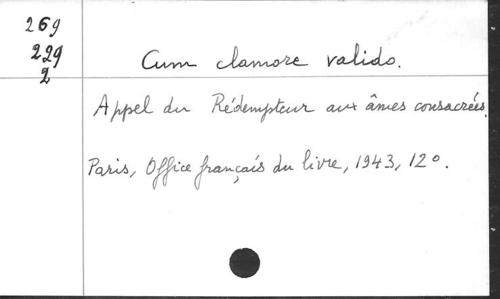 269
229
2
Cum clamore valido.
Appel du Rédempteur aux âmes consacrées.
Paris, Office français du livre, 1943, 12°.